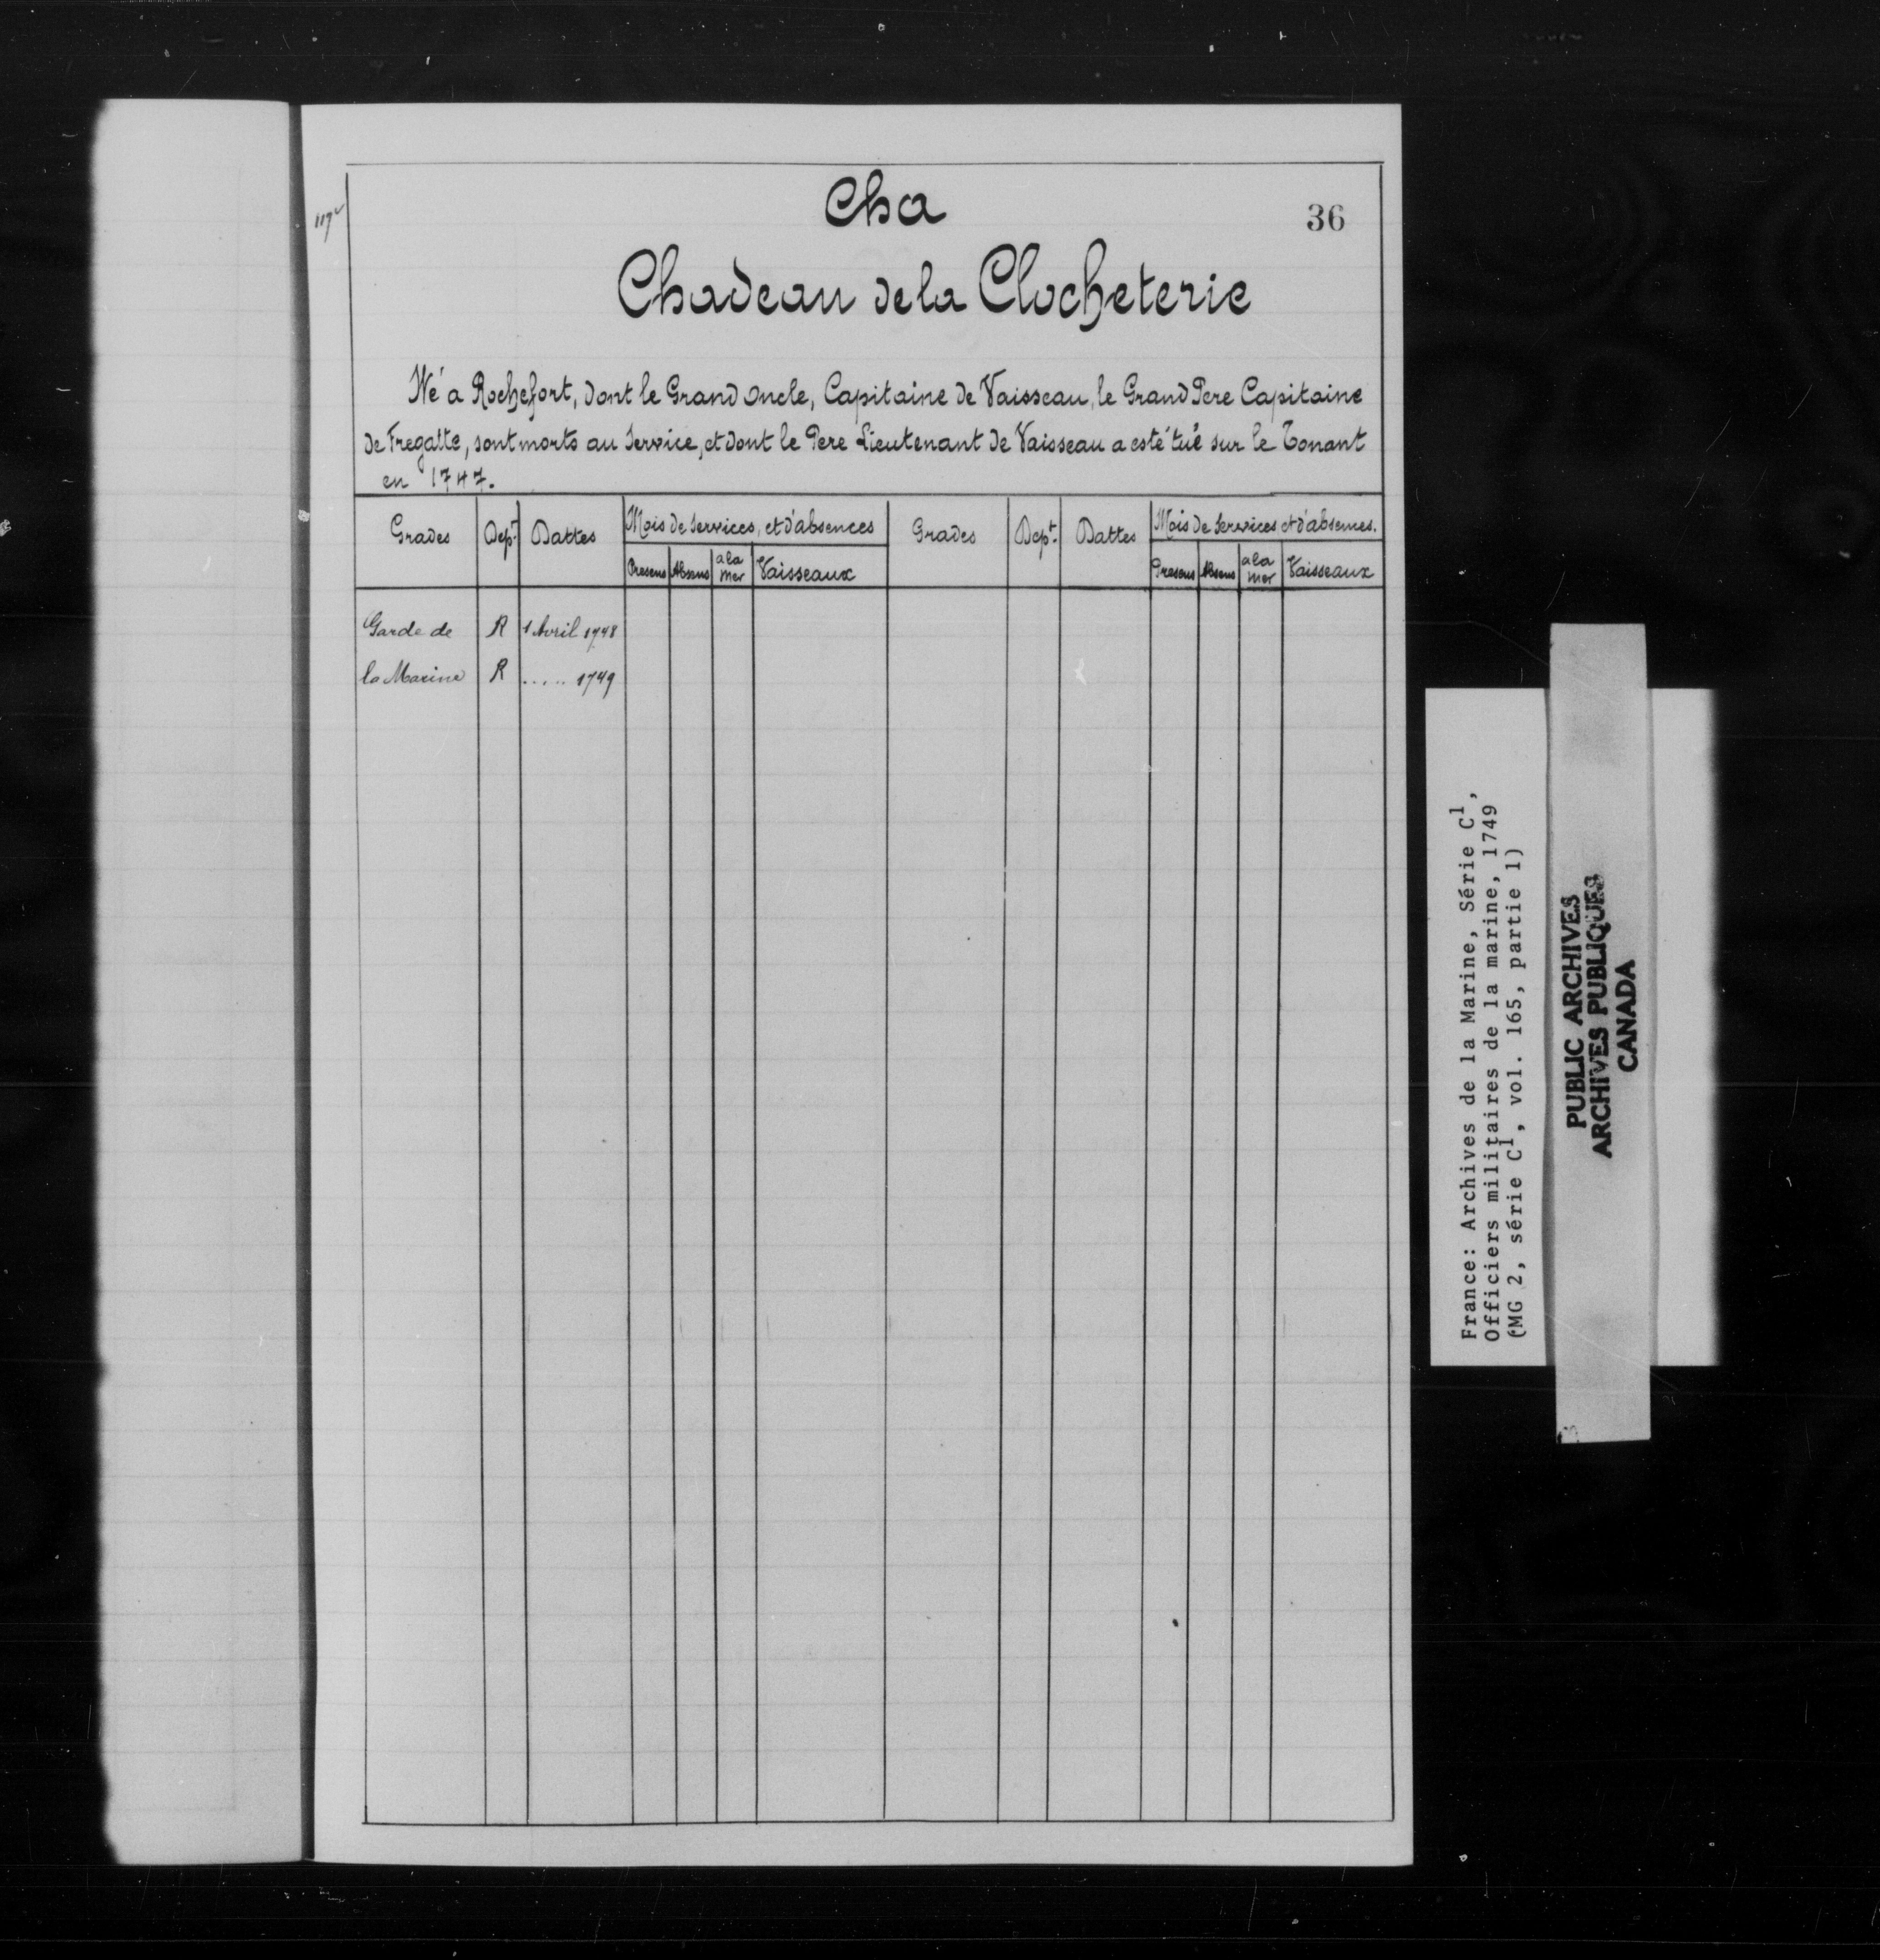 Cha
36
117v
Chadeau de la Clocheterie
Né a Rochefort, dont le Grand Oncle, Capitaine de Vaisseau, le Grand Pere Capitaine
de Fregatte, sont morts au Service, et dont le Pere Lieutenant de Vaisseau a esté tué sur le Tonant
en 1747.
Grades Dept. Dattes Mois de Services, et d'absences Grades Dept. Dattes Mois de Services et d'absences.
Presens Absens a la mer Vaisseaux Presens Absens a la mer Vaisseaux
Garde de R 1 Avril 1748
la Marine R ..... 1749
France: Archives de la Marine, Série C1,
Officiers militaires de la marine, 1749
(MG 2, série C1, vol. 165, partie 1)
PUBLIC ARCHIVES
ARCHIVES PUBLIQUES
CANADA